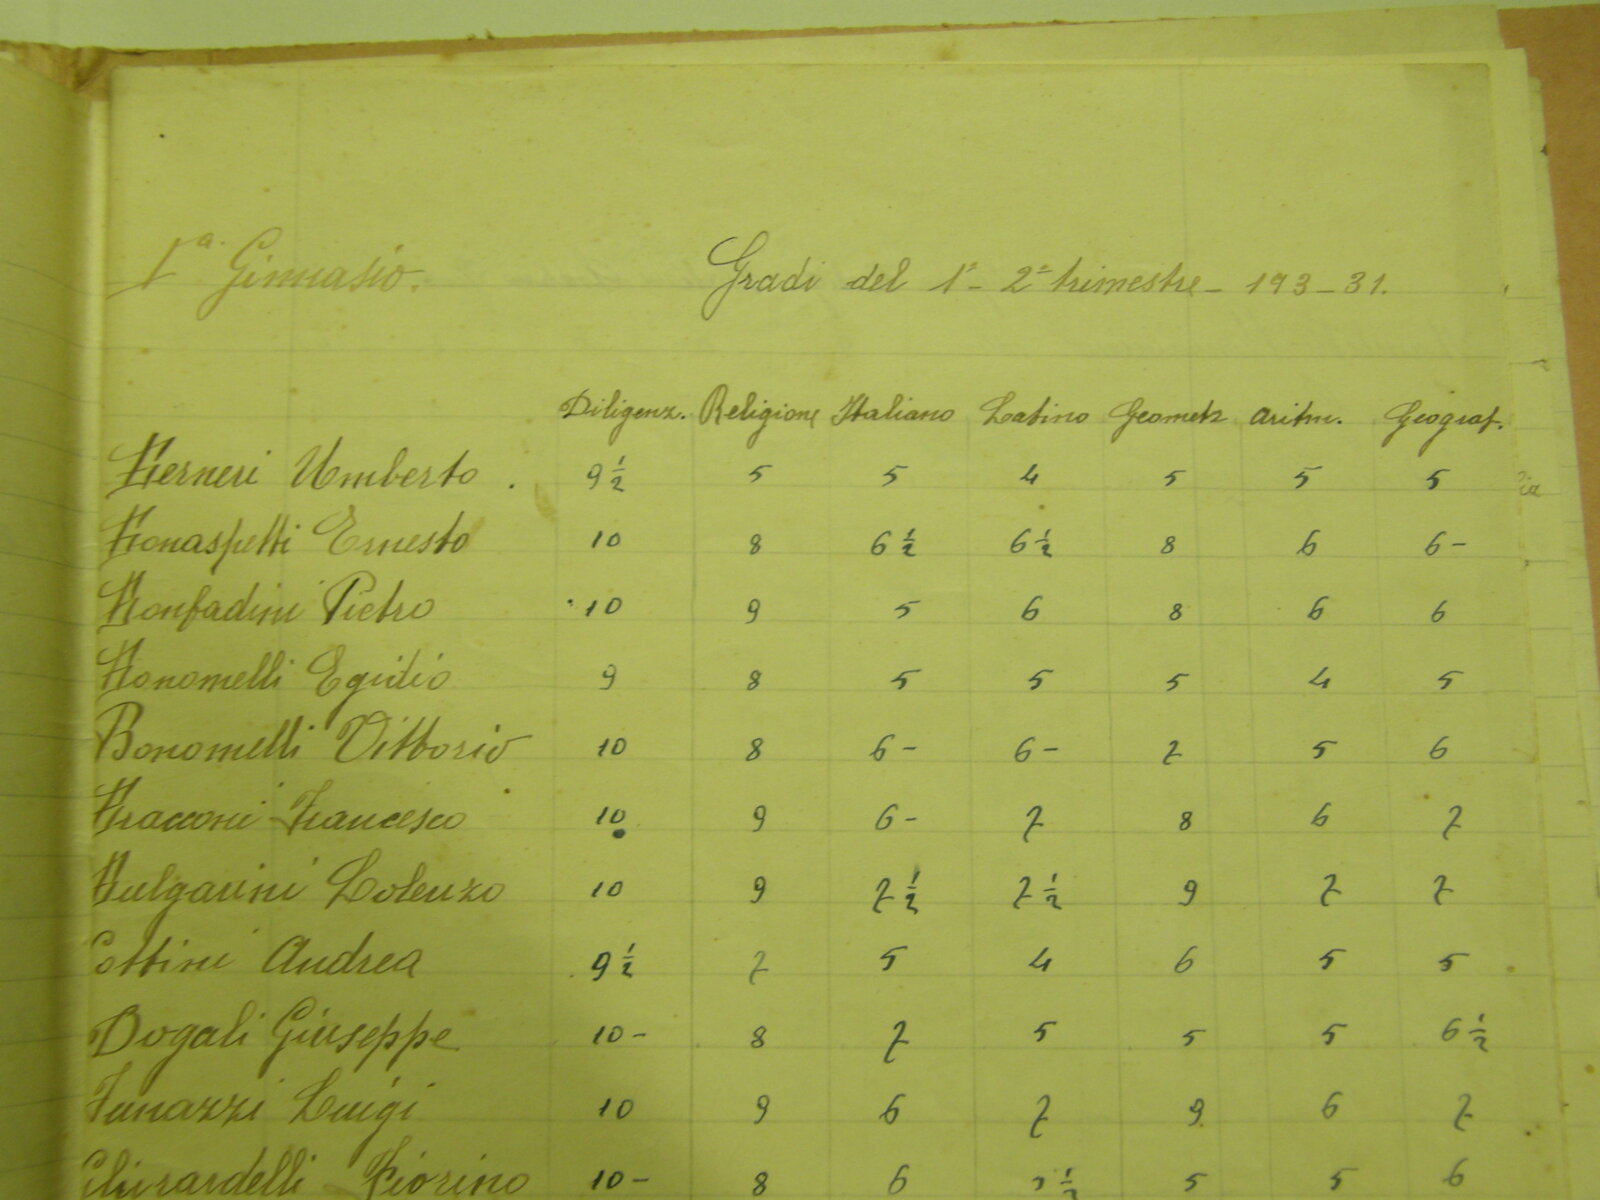 1ª Ginnasio. Gradi del 1°- 2° trimestre - 193-31.
Diligenz. Religione Italiano Latino Geometr aritm. Geograf.
Berneri Umberto . 9 ½ 5 5 4 5 5 5
Bonaspetti Ernesto 10 8 6 ½ 6 ½ 8 6 6-
Bonfadini Pietro 10 9 5 6 8 6 6
Bonomelli Egidio 9 8 5 5 5 4 5
Bonomelli Vittorio 10 8 6- 6- 7 5 6
Bracconi Francesco 10 9 6- 7 8 6 7
Bulgarini Lorenzo 10 9 7 ½ 7 ½ 9 7 7
Cottini Andrea 9 ½ 7 5 4 6 5 5
Dogali Giuseppe 10- 8 7 5 5 5 6 ½
Funazzi Luigi 10 9 6 7 9 6 7
Ghirardelli Fiorino 10- 8 6 ½ 5 5 6